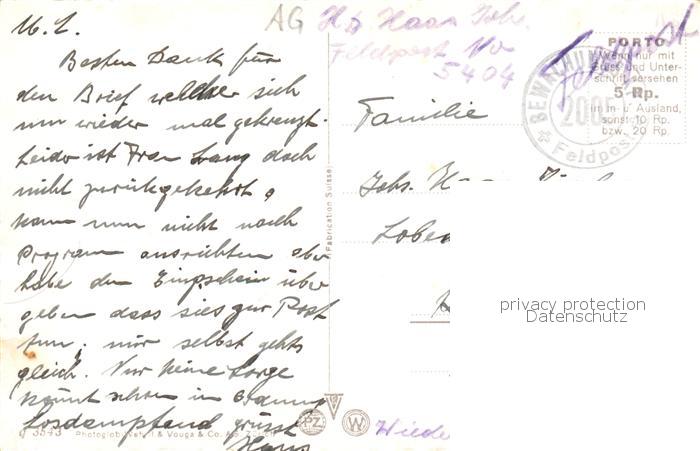 M. L.
Besten Dank für
den Brief welcher sich
nun wieder mal gekreuzt.
Leider ist Frau Lang doch
nicht zurückgekehrt,
kann nun nicht nach
Program ausrichten aber
habe den Einpschein über
geben dass sies zur Post
tun; mir selbst gehts
gleich. Nur keine Sorge
kommt schon in Ordnung
Losdampfend grüsst
Hans
AG
Hs Haas Johs.
Feldpost No
5404
Feldpost
PORTO
Wenn nur mit
Gruss und Unter-
schrift versehen
5 Rp.
im In- u. Ausland,
sonst 10 Rp.
bzw. 20 Rp.
BEWACHUN
2005
Feldpost
Familie
Johs. H
Loben
Fabrication Suisse
privacy protection
Datenschutz
Wiede
PZ
W
3543 Photoglob-Wehrli & Vouga & Co. AG. Zürich